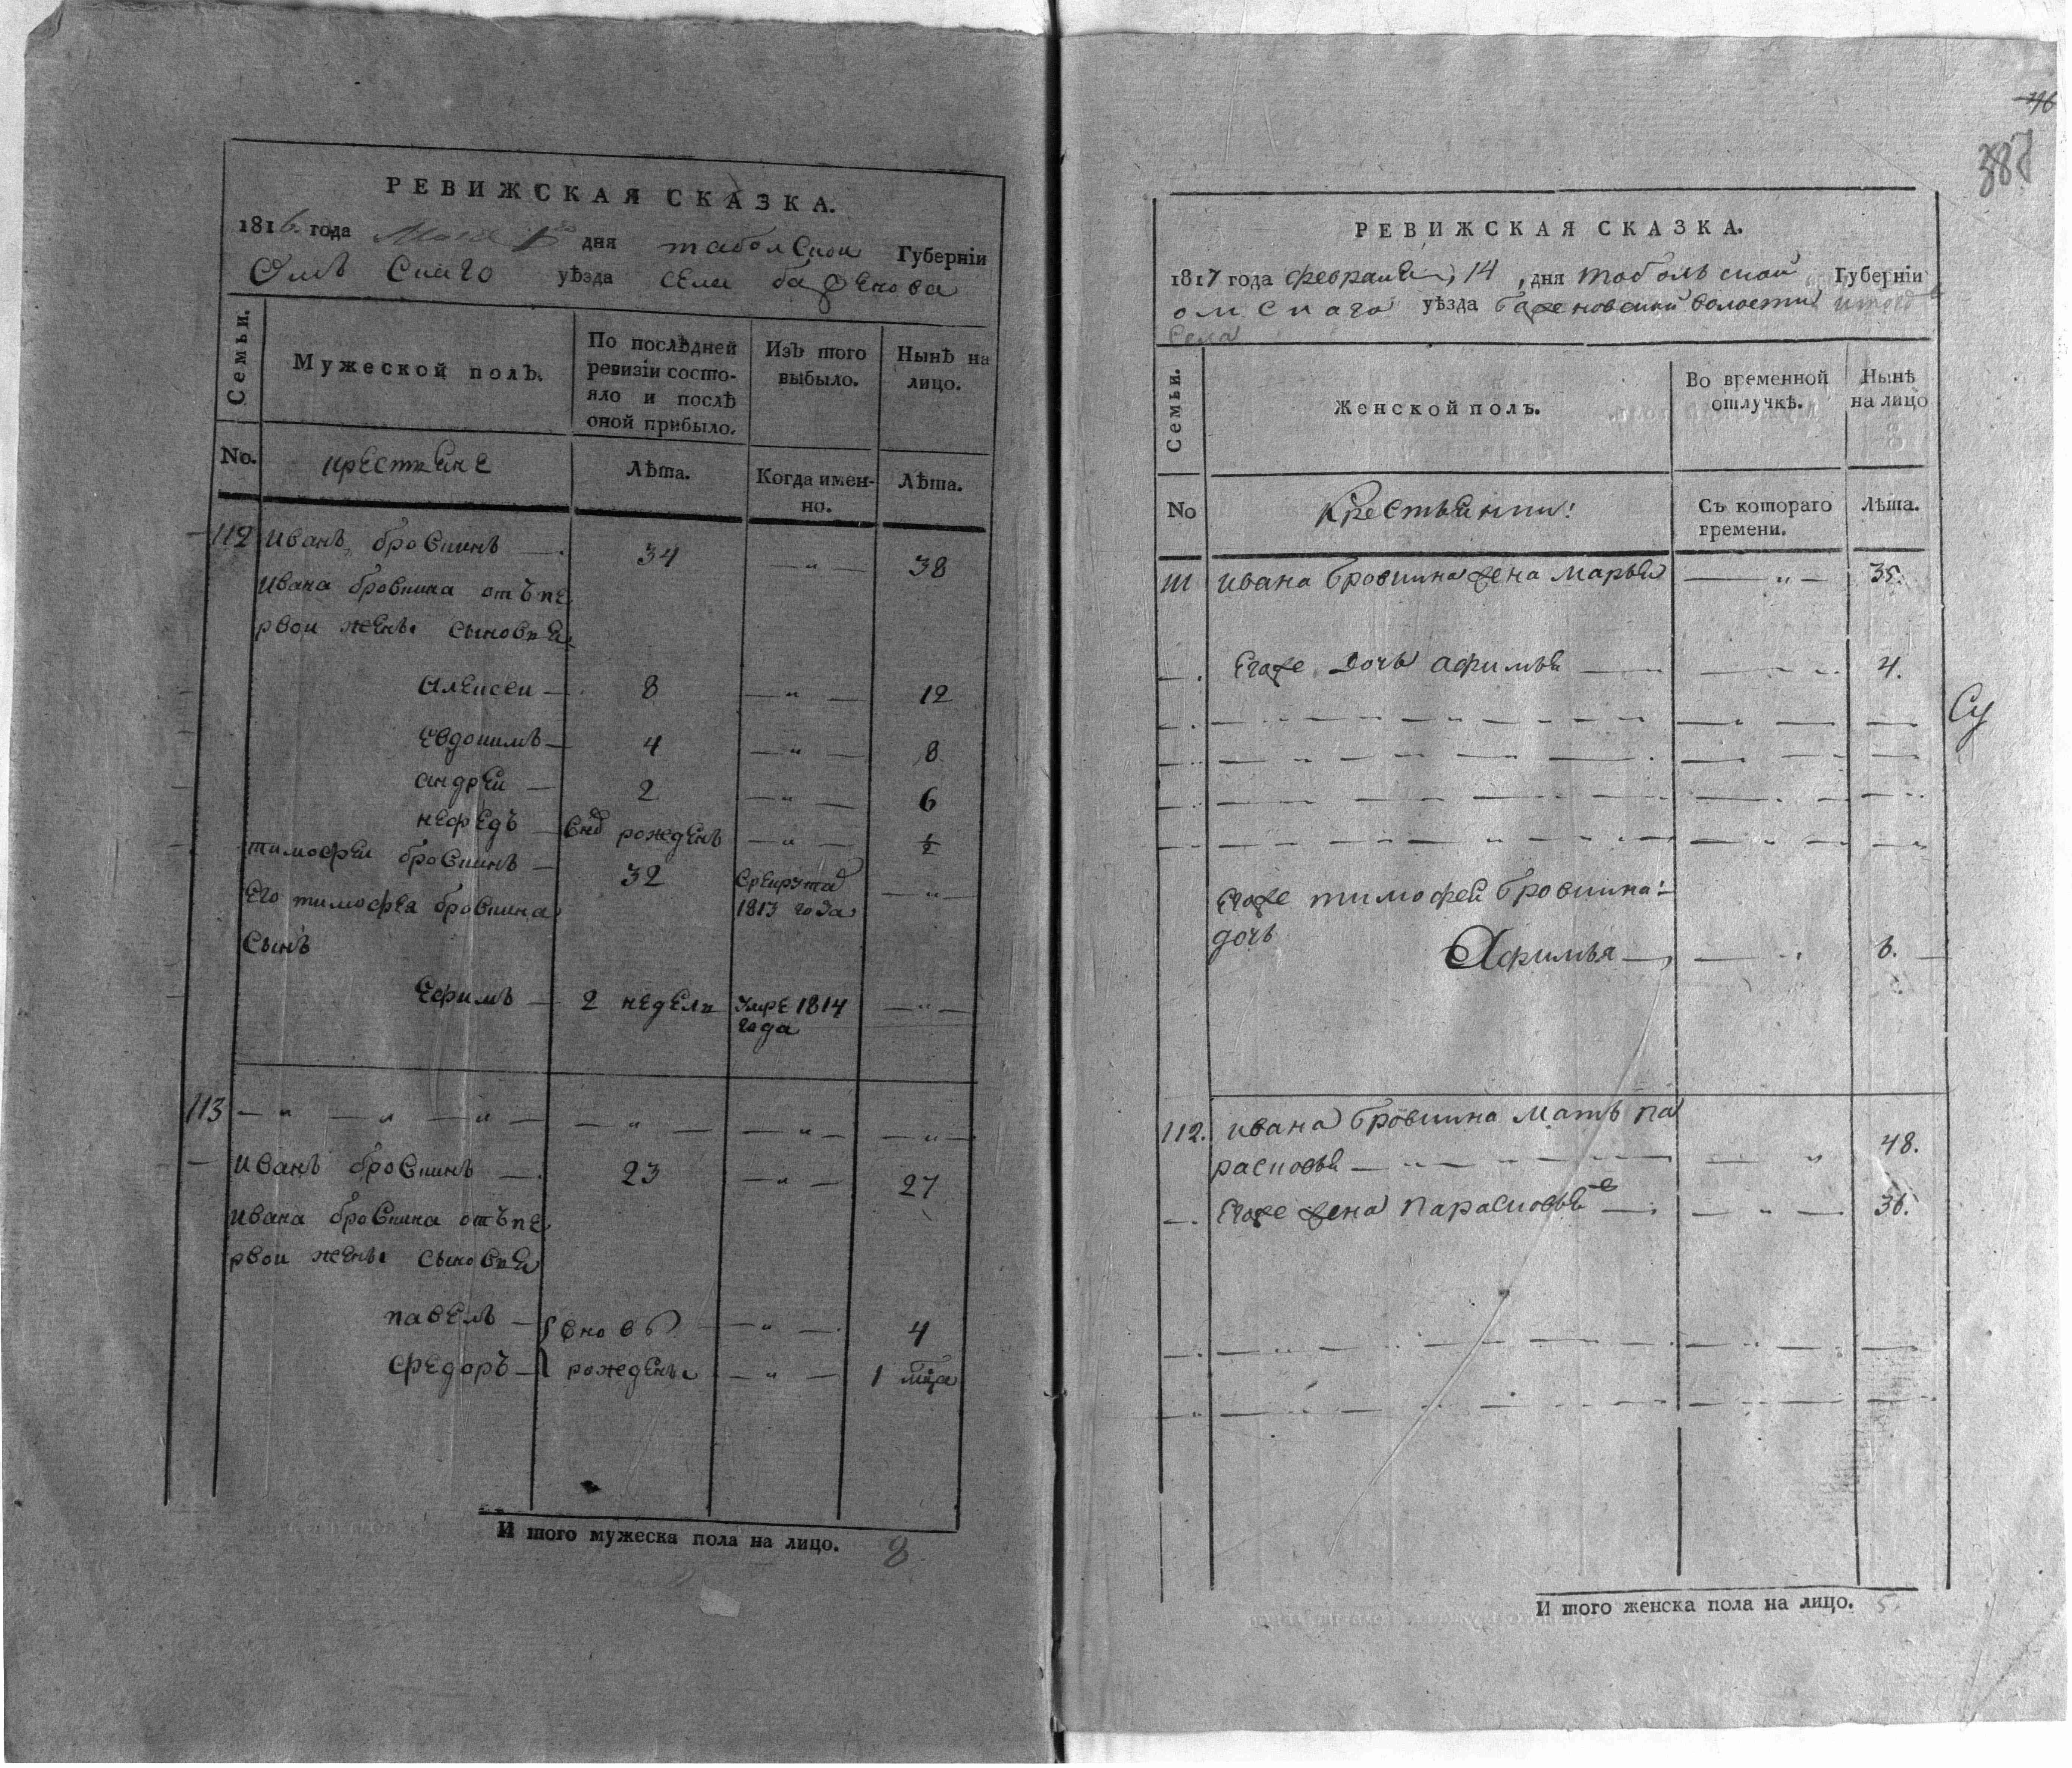 РЕВИЖСКАЯ СКАЗКА.
1816 года дня таболской Губерніи
Омъ Скаго уѣзда села баженова
Семьи.
Мужеской полъ.
По послѣдней
ревизіи состо-
яло и послѣ
оной прибыло.
Изъ того
выбыло.
Нынѣ на
лицо.
No.
крестяне
Лѣта.
Когда имен-
но.
Лѣта.
112 иванъ бровкинъ — 34 — " — 38
ивана бровкина отъ пе
рвои жены сыновья
алексеи — 8 — " — 12
евдокимъ — 4 — " — 8
андреи — 2 — " — 6
нефедъ — рожденъ — " — ½
тимофеи бровкинъ — 32
врекруты
1813 года — " —
Его тимофея бровкина
сынъ
Ефимъ — 2 недели
умре 1814
года — " —
113 — " — " — " — — " — — " — — " —
иванъ бровкинъ — 23 — " — 27
ивана бровкина отъ пе
рвои жены сыновья
павелъ — вновь — " — 4
федоръ — рожденъ — " — 1 мца
И того мужеска пола на лицо. 8
76
387
РЕВИЖСКАЯ СКАЗКА.
1817 года февраля 14, дня тобольской Губерніи
омскаго уѣзда баженовской волости тогожъ
села
Семьи.
Женской полъ.
Во временной
отлучкѣ.
Нынѣ
на лицо
No
Крестьянки:
Съ котораго
времени.
Лѣта.
111 ивана бровкина жена марья — " — 35.
Егоже дочь афимья — 4.
Су
Егоже тимофея бровкина:
дочь
Афимья — 6.
112. ивана бровкина мать па
расковья — " 48.
Егоже жена парасковья — " — 36.
И того женска пола на лицо. 5.